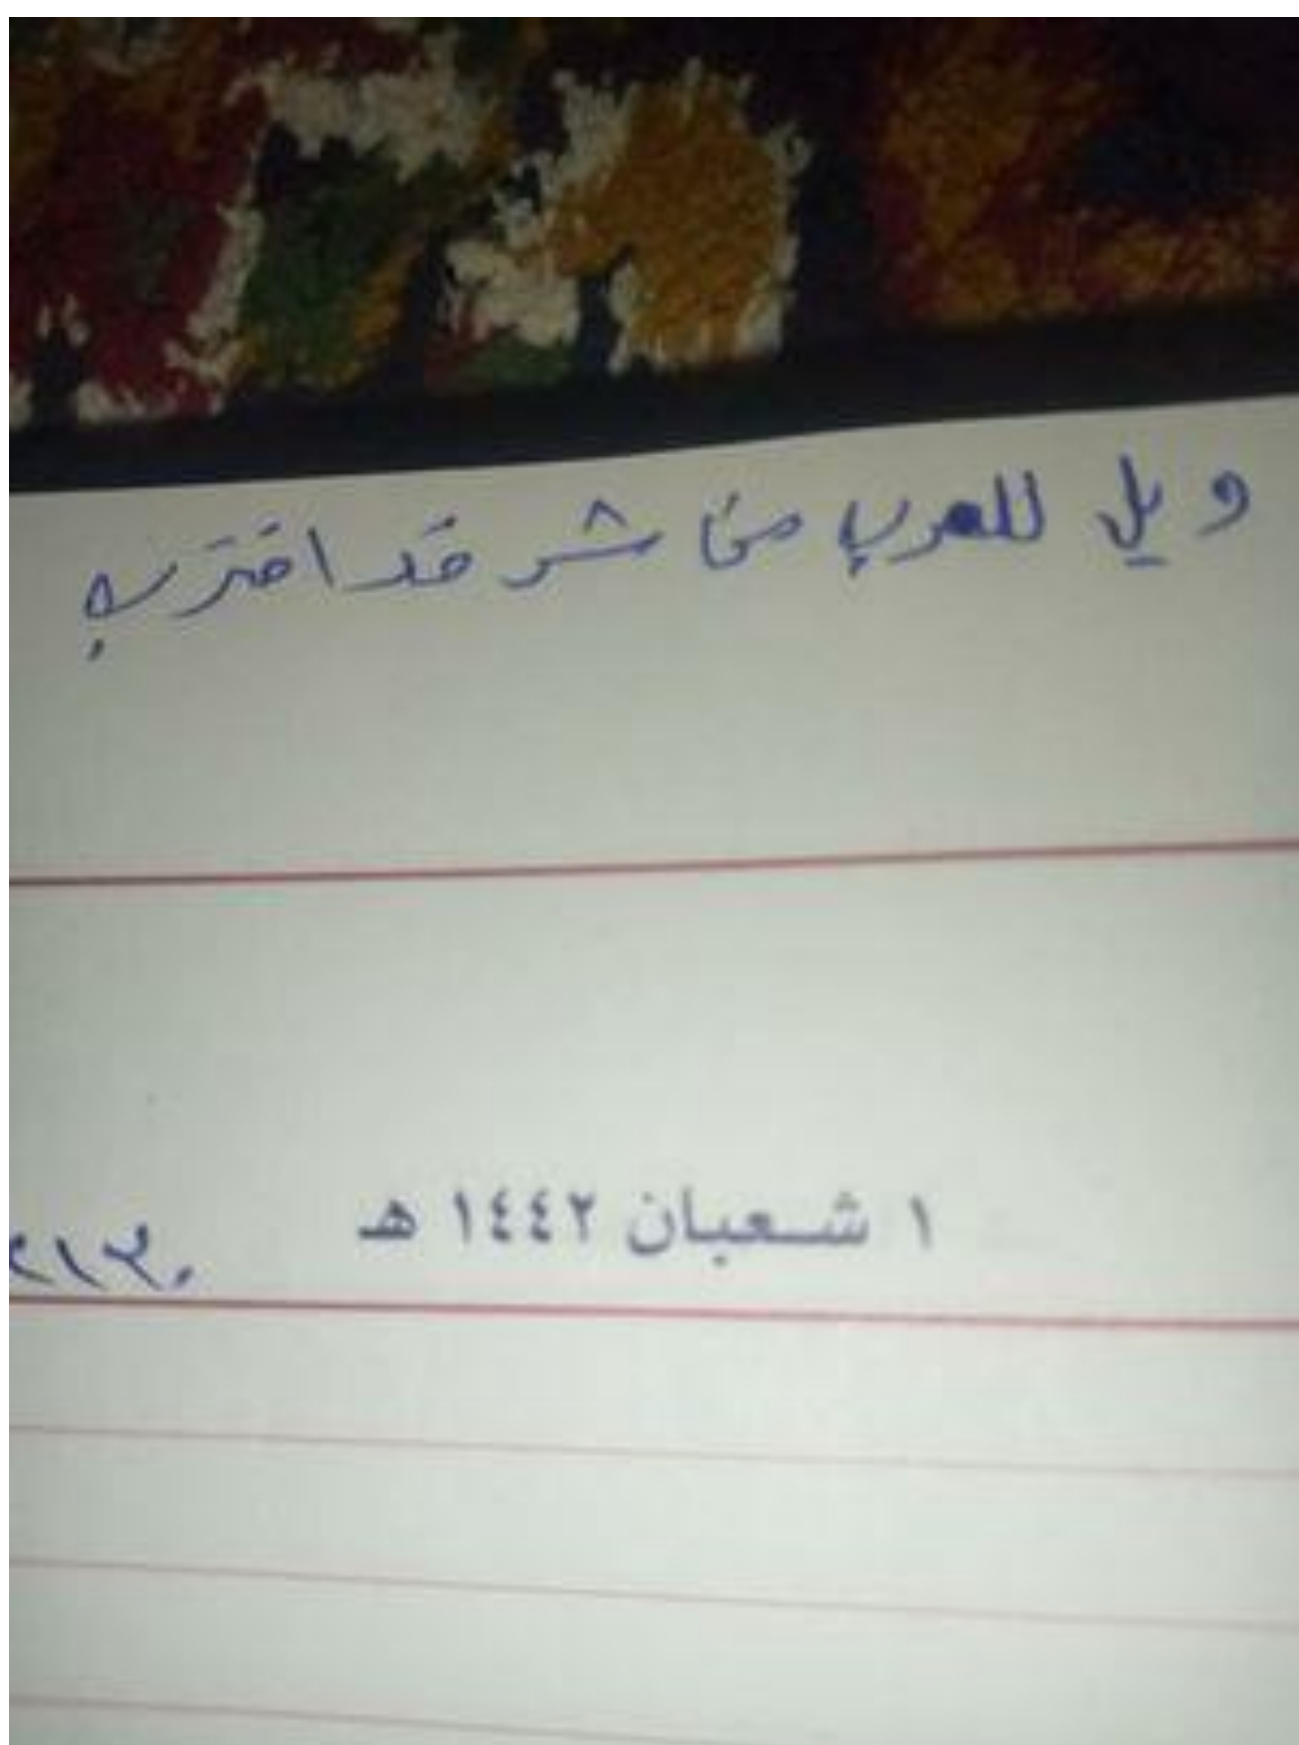 ويل للعرب من شر قد اقترب
١ شعبان ١٤٤٢ هـ